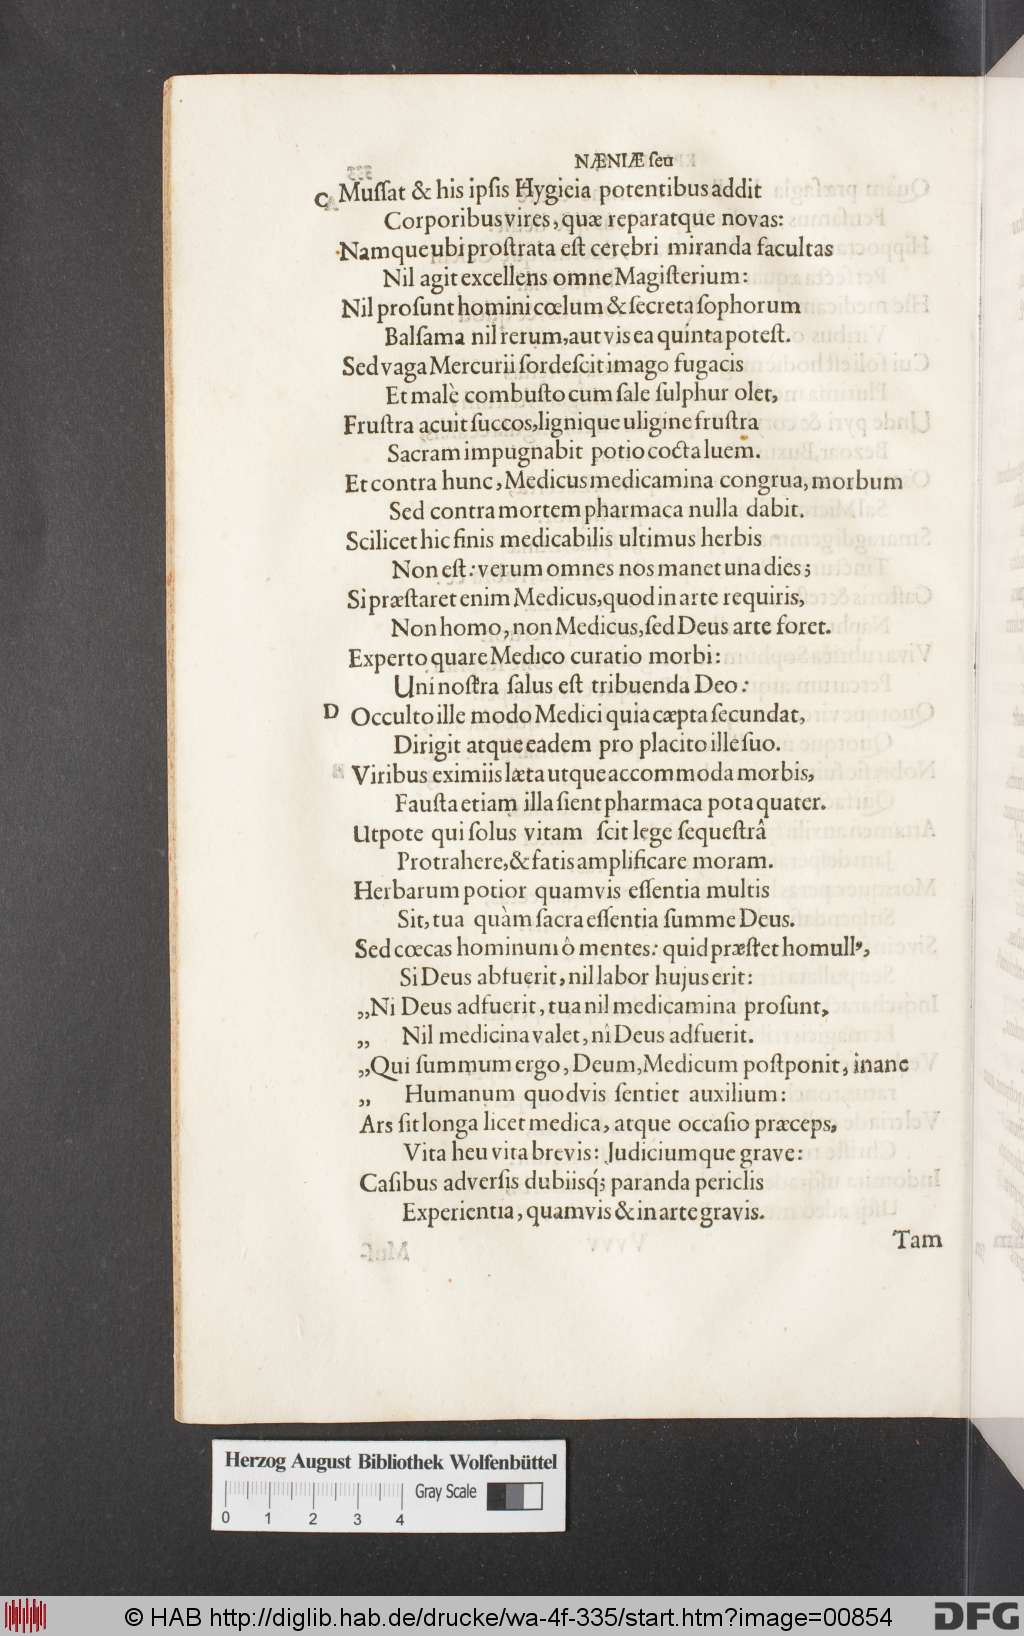 NÆNIÆ ſeu
C Muſſat & his ipſis Hygieia potentibus addit
Corporibus vires, quæ reparatque novas:
Namque ubi proſtrata eſt cerebri miranda facultas
Nil agit excellens omne Magiſterium:
Nil proſunt homini cœlum & ſecreta ſophorum
Balſama nil rerum, aut vis ea quinta poteſt.
Sed vaga Mercurii ſordeſcit imago fugacis
Et malè combuſto cum ſale ſulphur olet,
Fruſtra acuit ſuccos, lignique uligine fruſtra
Sacram impugnabit potio cocta luem.
Et contra hunc, Medicus medicamina congrua, morbum
Sed contra mortem pharmaca nulla dabit.
Scilicet hic finis medicabilis ultimus herbis
Non eſt: verum omnes nos manet una dies;
Si præſtaret enim Medicus, quod in arte requiris,
Non homo, non Medicus, ſed Deus arte foret.
Experto quare Medico curatio morbi:
Uni noſtra ſalus eſt tribuenda Deo:
D Occulto ille modo Medici quia cæpta ſecundat,
Dirigit atque eadem pro placito ille ſuo.
Viribus eximiis læta utque accommoda morbis,
Fauſta etiam illa ſient pharmaca pota quater.
Utpote qui ſolus vitam ſcit lege ſequeſtrâ
Protrahere, & fatis amplificare moram.
Herbarum potior quamvis eſſentia multis
Sit, tua quàm ſacra eſſentia ſumme Deus.
Sed cœcas hominum ô mentes: quid præſtet homullꝰ,
Si Deus abfuerit, nil labor hujus erit:
„Ni Deus adfuerit, tua nil medicamina proſunt,
„ Nil medicina valet, ni Deus adfuerit.
„Qui ſummum ergo, Deum, Medicum poſtponit, inane
„ Humanum quodvis ſentiet auxilium:
Ars ſit longa licet medica, atque occaſio præceps,
Vita heu vita brevis: Judiciumque grave:
Caſibus adverſis dubiisq́; paranda periclis
Experientia, quamvis & in arte gravis.
Tam
Herzog August Bibliothek Wolfenbüttel
Gray Scale
0 1 2 3 4
© HAB http://diglib.hab.de/drucke/wa-4f-335/start.htm?image=00854
DFG